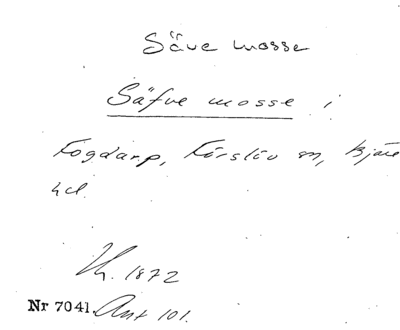 Säve mosse
Säfve mosse i
Fogdarp, Förslöv sn, Bjäre
hd.
Lh. 1872
Nr 7041. Ant 101.